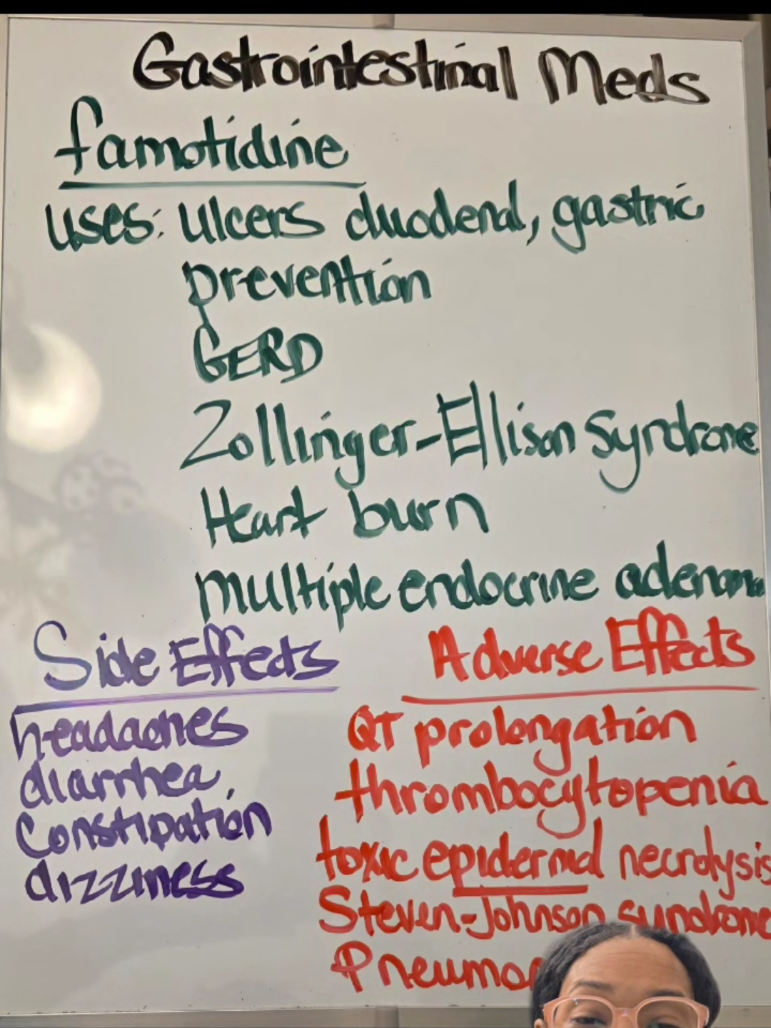 Gastrointestinal Meds
famotidine
uses: ulcers duodenal, gastric
prevention
GERD
Zollinger-Ellison syndrome
Heart burn
multiple endocrine
Side Effects
headaches
diarrhea,
Constipation
dizziness
Adverse Effects
QT prolongation
thrombocytopenia
toxic epidermal necrolysis
Steven-Johnson syndrome